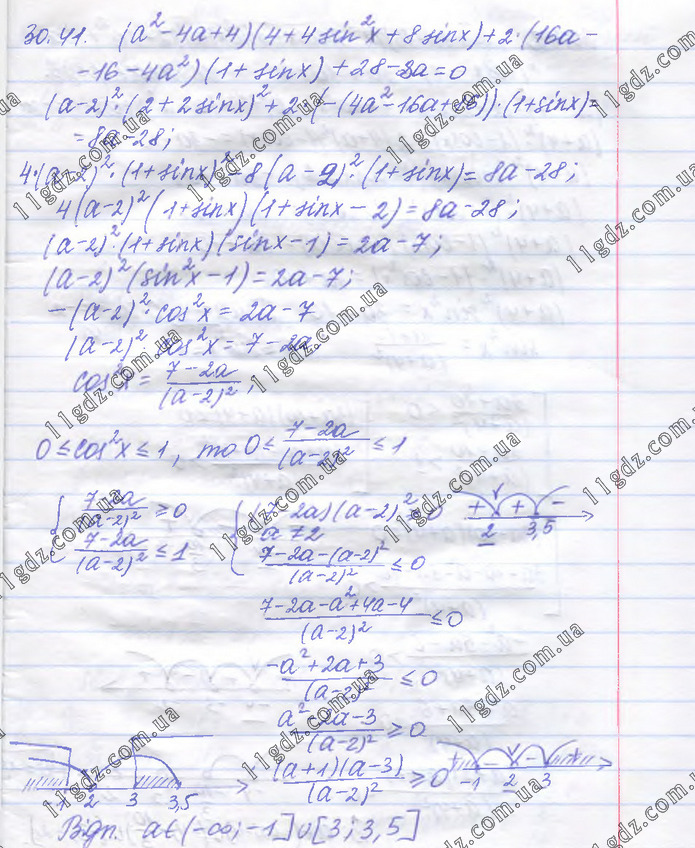 30.41. (a²-4a+4)(4+4sin²x+8sinx)+2·(16a-
-16-4a²)(1+sinx)+28-8a=0
(a-2)²·(2+2sinx)²+2·(-(4a²-16a+16))·(1+sinx)=
=8a-28;
4·(a-2)²·(1+sinx)²-8(a-2)²·(1+sinx)=8a-28;
4(a-2)²(1+sinx)(1+sinx-2)=8a-28;
(a-2)²·(1+sinx)(sinx-1)=2a-7;
(a-2)²(sin²x-1)=2a-7;
-(a-2)²·cos²x=2a-7
(a-2)²·cos²x=7-2a
cos²x=(7-2a)/(a-2)²;
0≤cos²x≤1, то 0≤(7-2a)/(a-2)²≤1
{ (7-2a)/(a-2)²≥0 { (7-2a)(a-2)²≥0 + + -
(7-2a)/(a-2)²≤1 a≠2 2 3,5
(7-2a-(a-2)²)/(a-2)²≤0
(7-2a-a²+4a-4)/(a-2)²≤0
(-a²+2a+3)/(a-2)²≤0
(a²-2a-3)/(a-2)²≥0
(a+1)(a-3)/(a-2)²≥0 + - - + -1 2 3
-1 2 3 3,5
Відп. a∈(-∞;-1]∪[3;3,5]
11gdz.com.ua